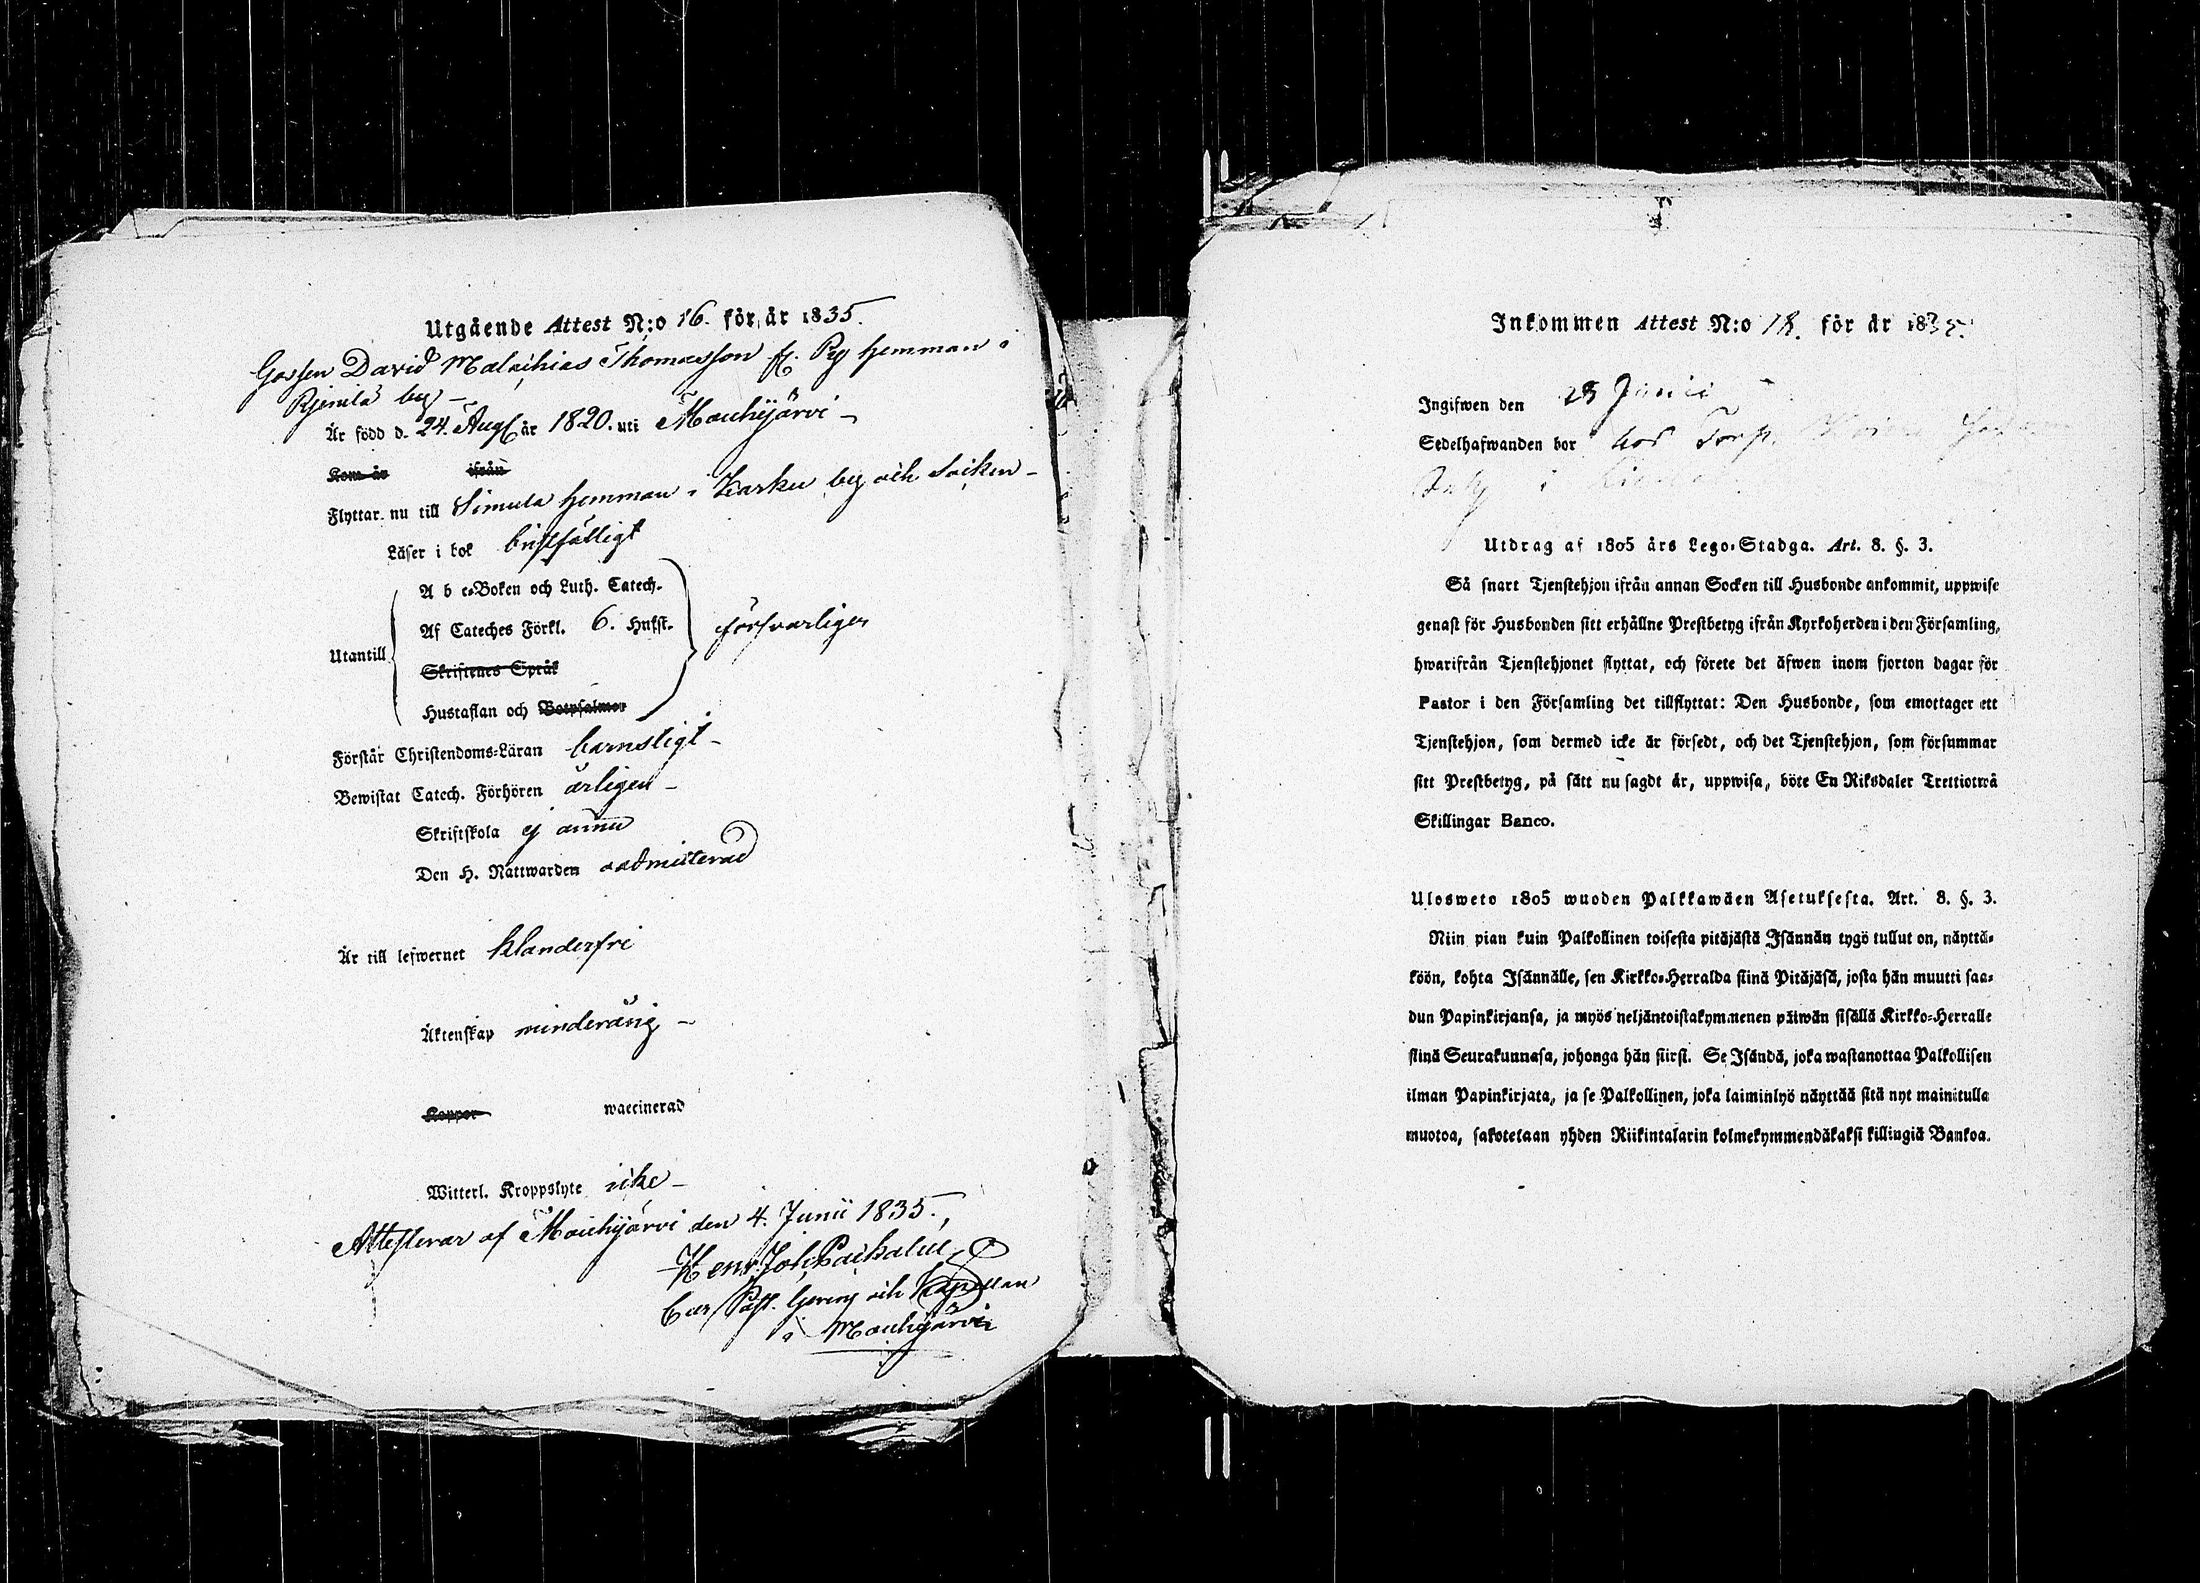 Utgående Attest N:o 16. för år 1835.
Gossen David Malachias Thomasson fr. Pry hemman i
by –
Är född d. 24. Aug. år 1820. uti Mouhijärvi –
Kom år ifrån
Flyttar nu till Simula hemman i Karku by och Socken –
Läser i bok bristfälligt
A b c-Boken och Luth. Catech.
Af Cateches Förkl. 6. Hufst. försvarligen
Utantill
Skriftenes Språk
Hustaflan och Botpsalmer
Förstår Christendoms-Läran barnsligt –
Bewistat Catech. Förhören årligen –
Skriftskola ej ännu
Den H. Nattwarden oadmitterad
Är till lefwernet klanderfri
Äktenskap minderårig –
Koppor waccinerad
Witterl. Kroppslyte icke –
Attesterar af Mouhijärvi den 4. Junii 1835.
Henr. Joh.
Past. och Kapellan
i Mouhijärvi
Inkommen Attest N:o 18. för år 1835.
Ingifwen den 28 Junii
Sedelhafwanden bor hos Torp.
i
Utdrag af 1805 års Lego-Stadga. Art. 8. §. 3.
Så snart Tjenstehjon ifrån annan Socken till Husbonde ankommit, uppwise
genast för Husbonden sitt erhållne Prestbetyg ifrån Kyrkoherden i den Församling,
hwarifrån Tjenstehjonet flyttat, och förete det äfwen inom fjorton dagar för
Pastor i den Församling det tillflyttat: Den Husbonde, som emottager ett
Tjenstehjon, som dermed icke är försedt, och det Tjenstehjon, som försummar
sitt Prestbetyg, på sätt nu sagdt är, uppwisa, böte En Riksdaler Trettiotwå
Skillingar Banco.
Ulosweto 1805 wuoden Palkkawäen Asetuksesta. Art. 8. §. 3.
Niin pian kuin Palkollinen toisesta pitäjästä Isännän tygö tullut on, näyttä-
köön, kohta Isännälle, sen Kirkko-Herralda siinä Pitäjäsä, josta hän muutti saa-
dun Papinkirjansa, ja myös neljäntoistakymmenen päiwän sisällä Kirkko-Herralle
siinä Seurakunnasa, johonga hän siirsi. Se Isändä, joka wastanottaa Palkollisen
ilman Papinkirjata, ja se Palkollinen, joka laiminlyö näyttää sitä nyt mainitulla
muotoa, sakotetaan yhden Riikintalarin kolmekymmendäkaksi killingiä Bankoa.